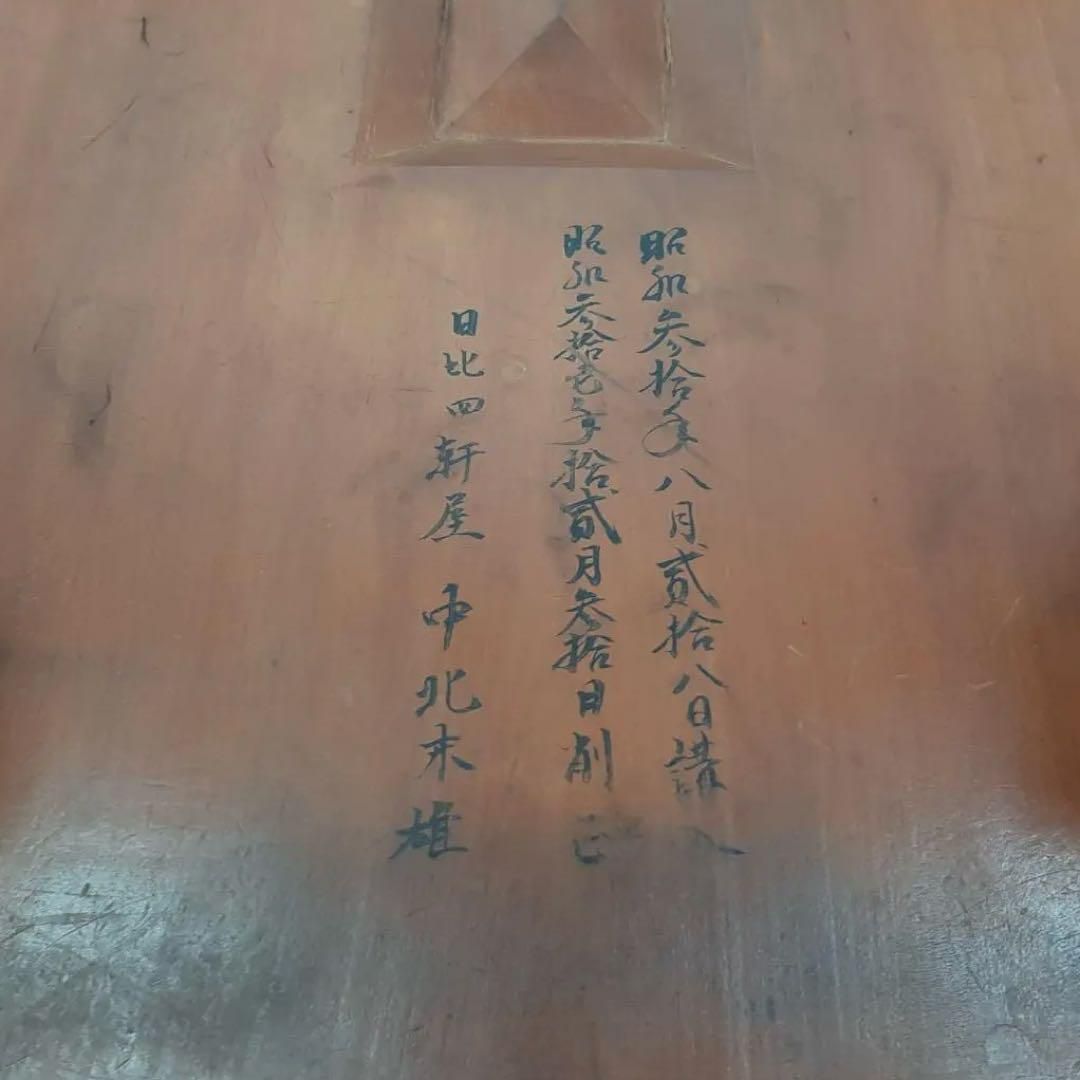 昭和参拾年八月貳拾八日講入
昭和参拾壱年拾貳月参拾日削正
日比四軒屋 中北末雄